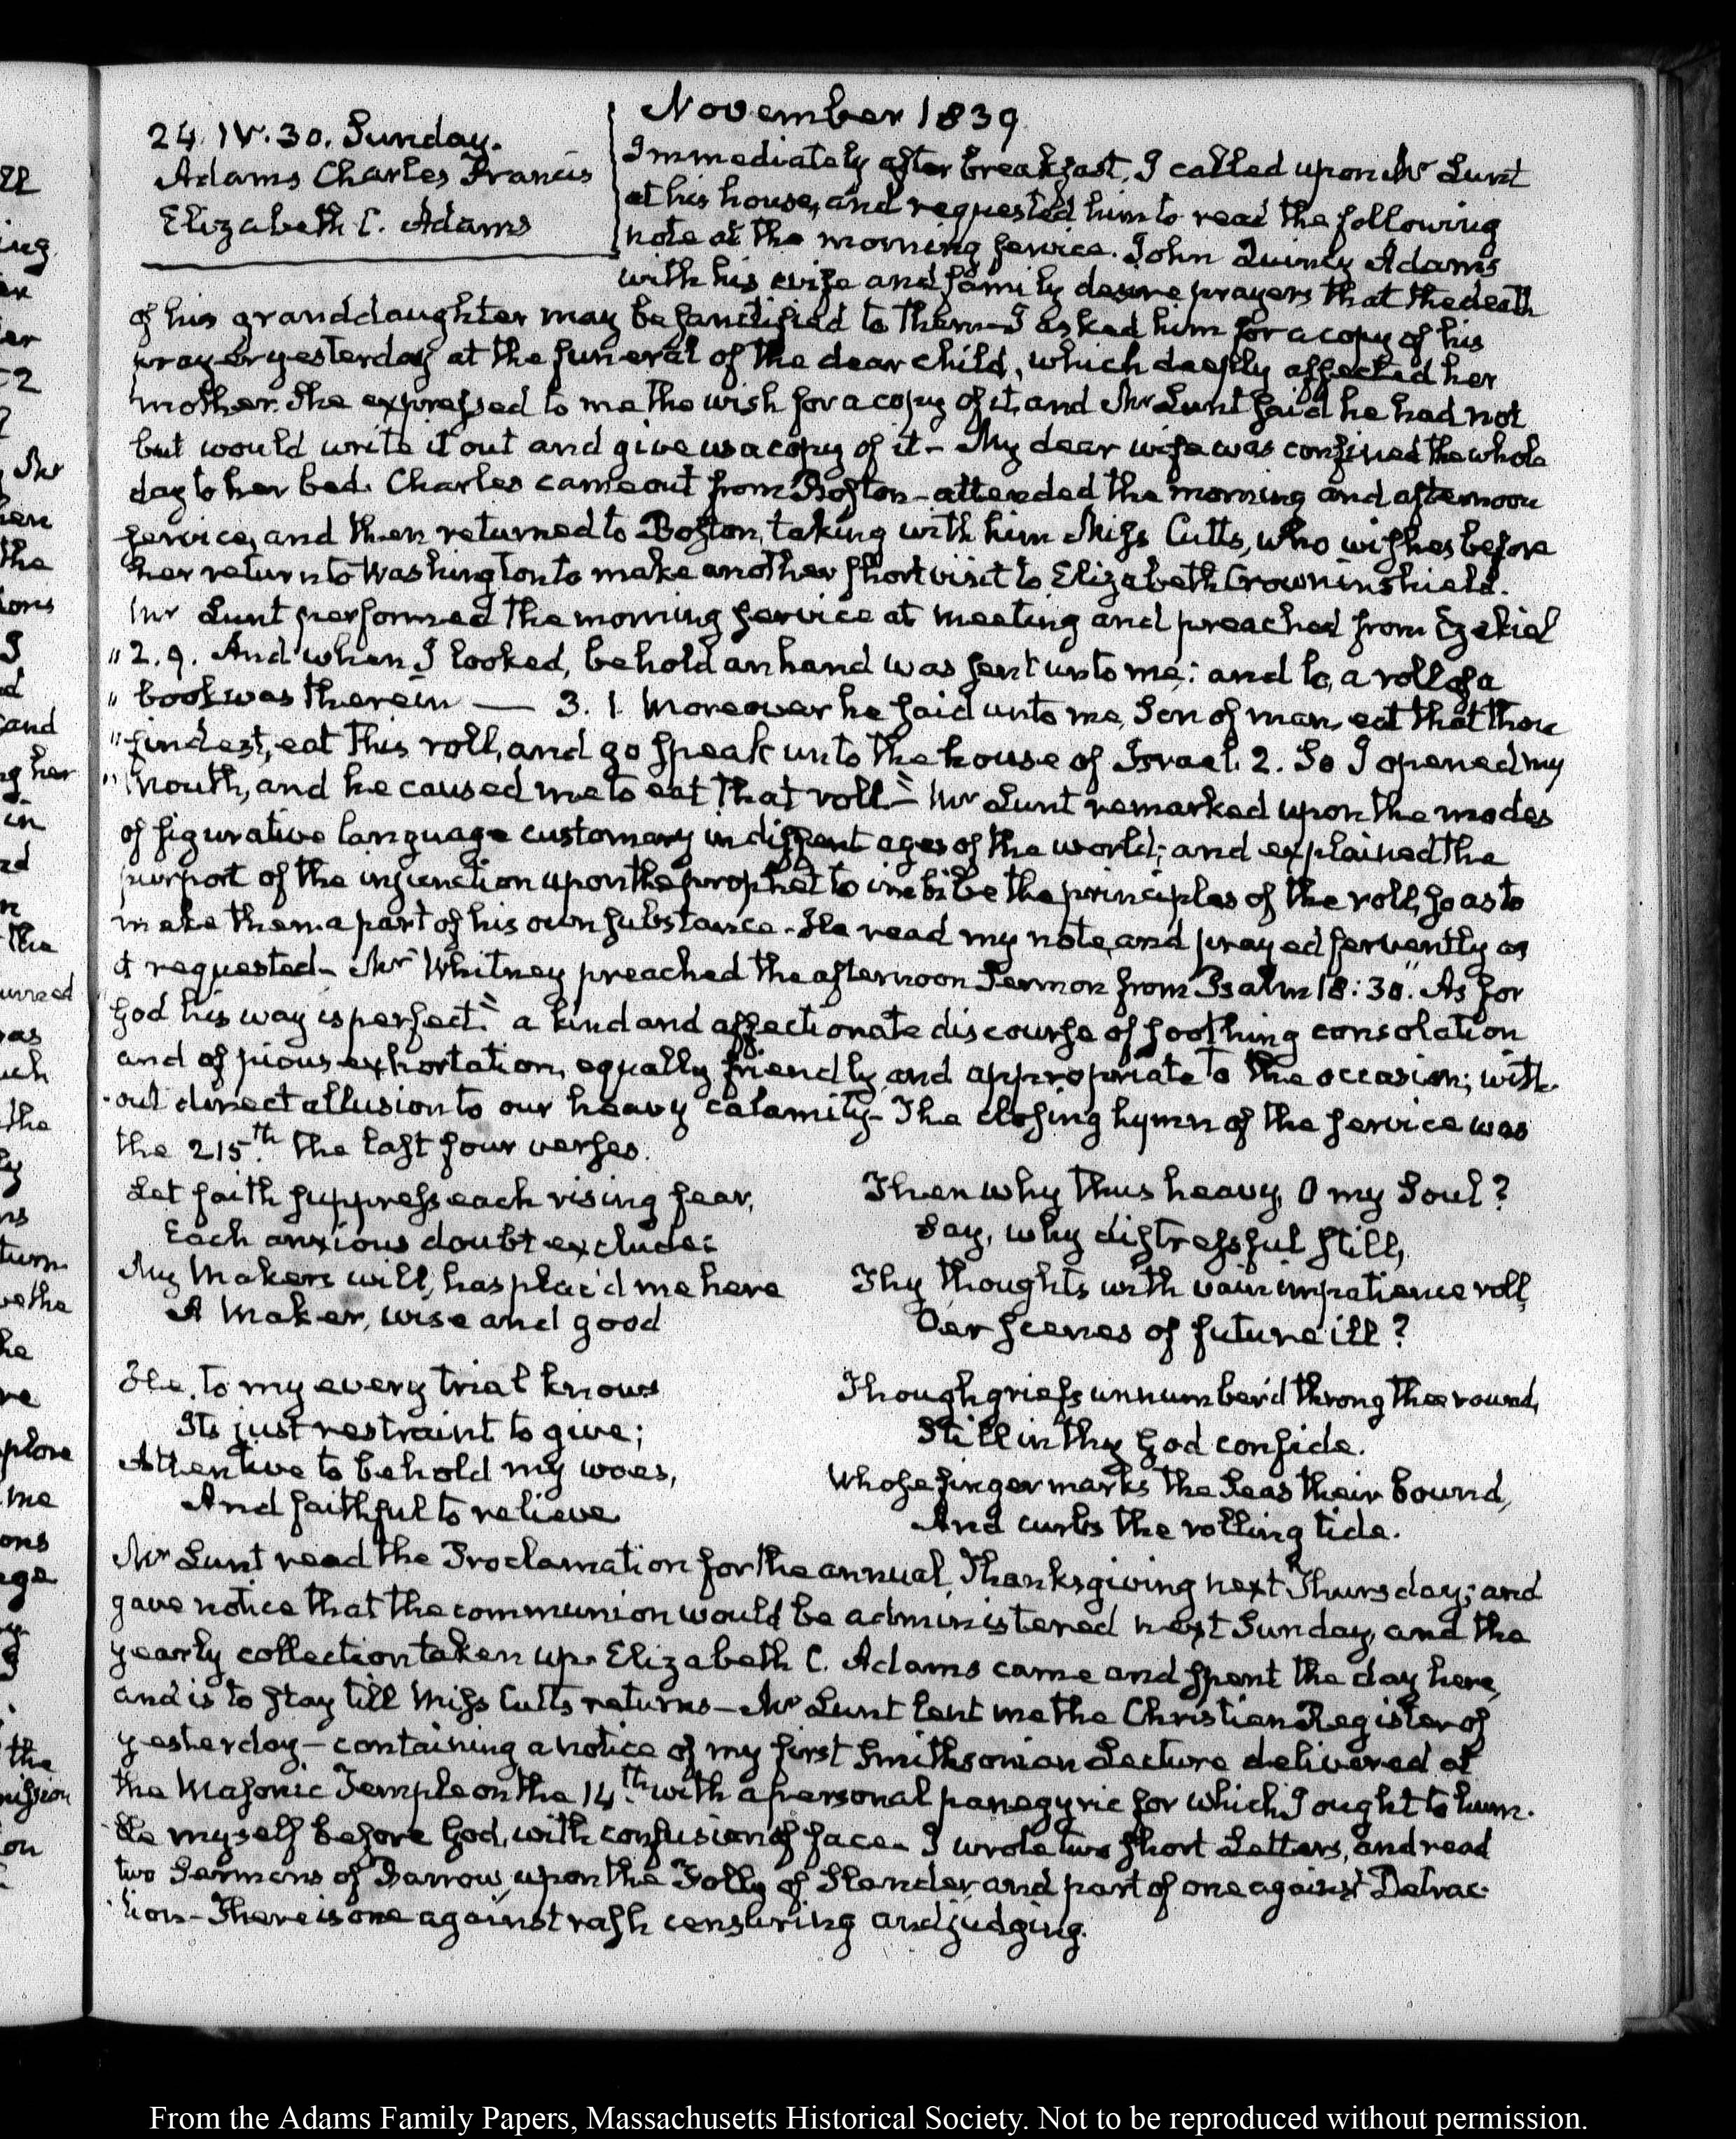 November 1839
24. IV. 30. Sunday.
Adams Charles Francis
Elizabeth C. Adams
Immediately after breakfast, I called upon Mr Lunt
at his house, and requested him to read the following
note at the morning service. John Quincy Adams
with his wife and family desire prayers that the death
of his granddaughter may be sanctified to them— I asked him for a copy of his
prayer yesterday at the funeral of the dear child, which deeply affected her
mother. She expressed to me the wish for a copy of it, and Mr Lunt said he had not
but would write it out and give us a copy of it— My dear wife was confined the whole
day to her bed. Charles came out from Boston— attended the morning and afternoon
service, and then returned to Boston, taking with him Miss Cutts, who wishes before
her return to Washington to make another short visit to Elizabeth Crowninshield.
Mr Lunt performed the morning service at meeting and preached from Ezekiel
" 2. 9. And when I looked, behold an hand was sent unto me; and lo, a roll of a
" book was therein — 3. 1. Moreover he said unto me, Son of man, eat that thou
" findest, eat this roll, and go speak unto the house of Israel. 2. So I opened my
" mouth, and he caused me to eat that roll"— Mr Lunt remarked upon the modes
of figurative language customary in different ages of the world; and explained the
purport of the injunction upon the prophet to imbibe the principles of the roll, so as to
make them a part of his own substance. He read my note, and prayed fervently as
it requested— Mr Whitney preached the afternoon Sermon from Psalm 18: 30. "As for
God his way is perfect." a kind and affectionate discourse of soothing consolation
and of pious exhortation, equally friendly and appropriate to the occasion; with-
-out direct allusion to our heavy calamity— The closing hymn of the service was
the 215.th the last four verses.
Let faith suppress each rising fear,
Each anxious doubt exclude:
My Makers will, has plac'd me here
A Maker, wise and good
He, to my every trial knows
Its just restraint to give;
Attentive to behold my woes,
And faithful to relieve
Then why thus heavy, O my Soul?
Say, why distressful still,
Thy thoughts with vain impatience roll,
Oer scenes of future ill?
Though griefs unnumber'd throng thee round,
Still in thy God confide.
Whose finger marks the Seas their bound,
And curbs the rolling tide.
Mr Lunt read the Proclamation for the annual Thanksgiving next Thursday; and
gave notice that the communion would be administered next Sunday, and the
yearly collection taken up. Elizabeth C. Adams came and spent the day here,
and is to stay till Miss Cutts returns— Mr Lunt lent me the Christian Register of
yesterday— containing a notice of my first Smithsonian Lecture delivered at
the Masonic Temple on the 14.th with a personal panegyric for which I ought to hum-
-ble myself before God, with confusion of face. I wrote two short Letters, and read
two Sermons of Barrow, upon the Folly of Slander, and part of one against Detrac-
-tion— There is one against rash censuring and judging.
From the Adams Family Papers, Massachusetts Historical Society. Not to be reproduced without permission.